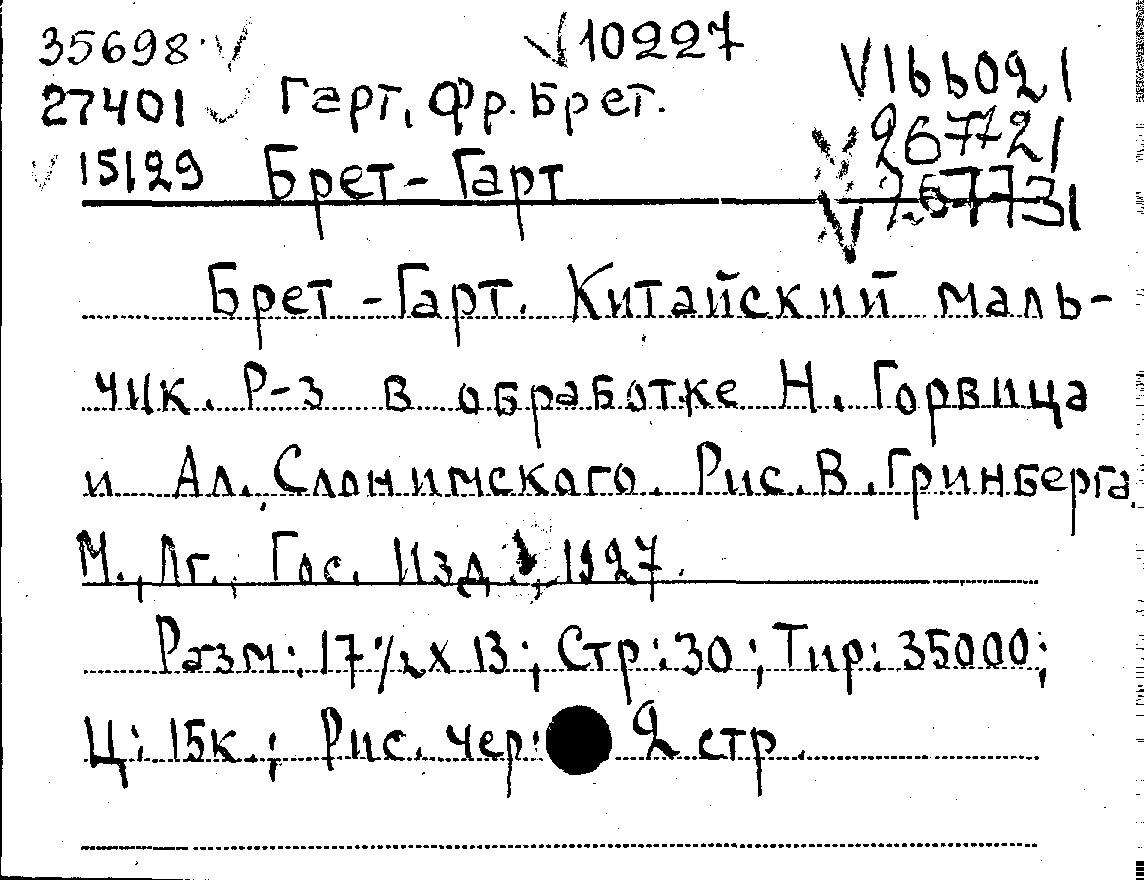 35698 V V 10227
27401 V Гарт, Фр. Брет. V 166021
V 15129 Брет-Гарт V 267721
V 267731
Брет-Гарт. Китайский маль-
чик. Р-з в обработке Н. Горвица
и Ал. Слонимского. Рис. В. Гринберга.
М., Лг., Гос. Изд., 1927.
Разм: 17 1/2 х 13; Стр: 30; Тир: 35000;
Ц: 15к.; Рис. чер: 2 стр.